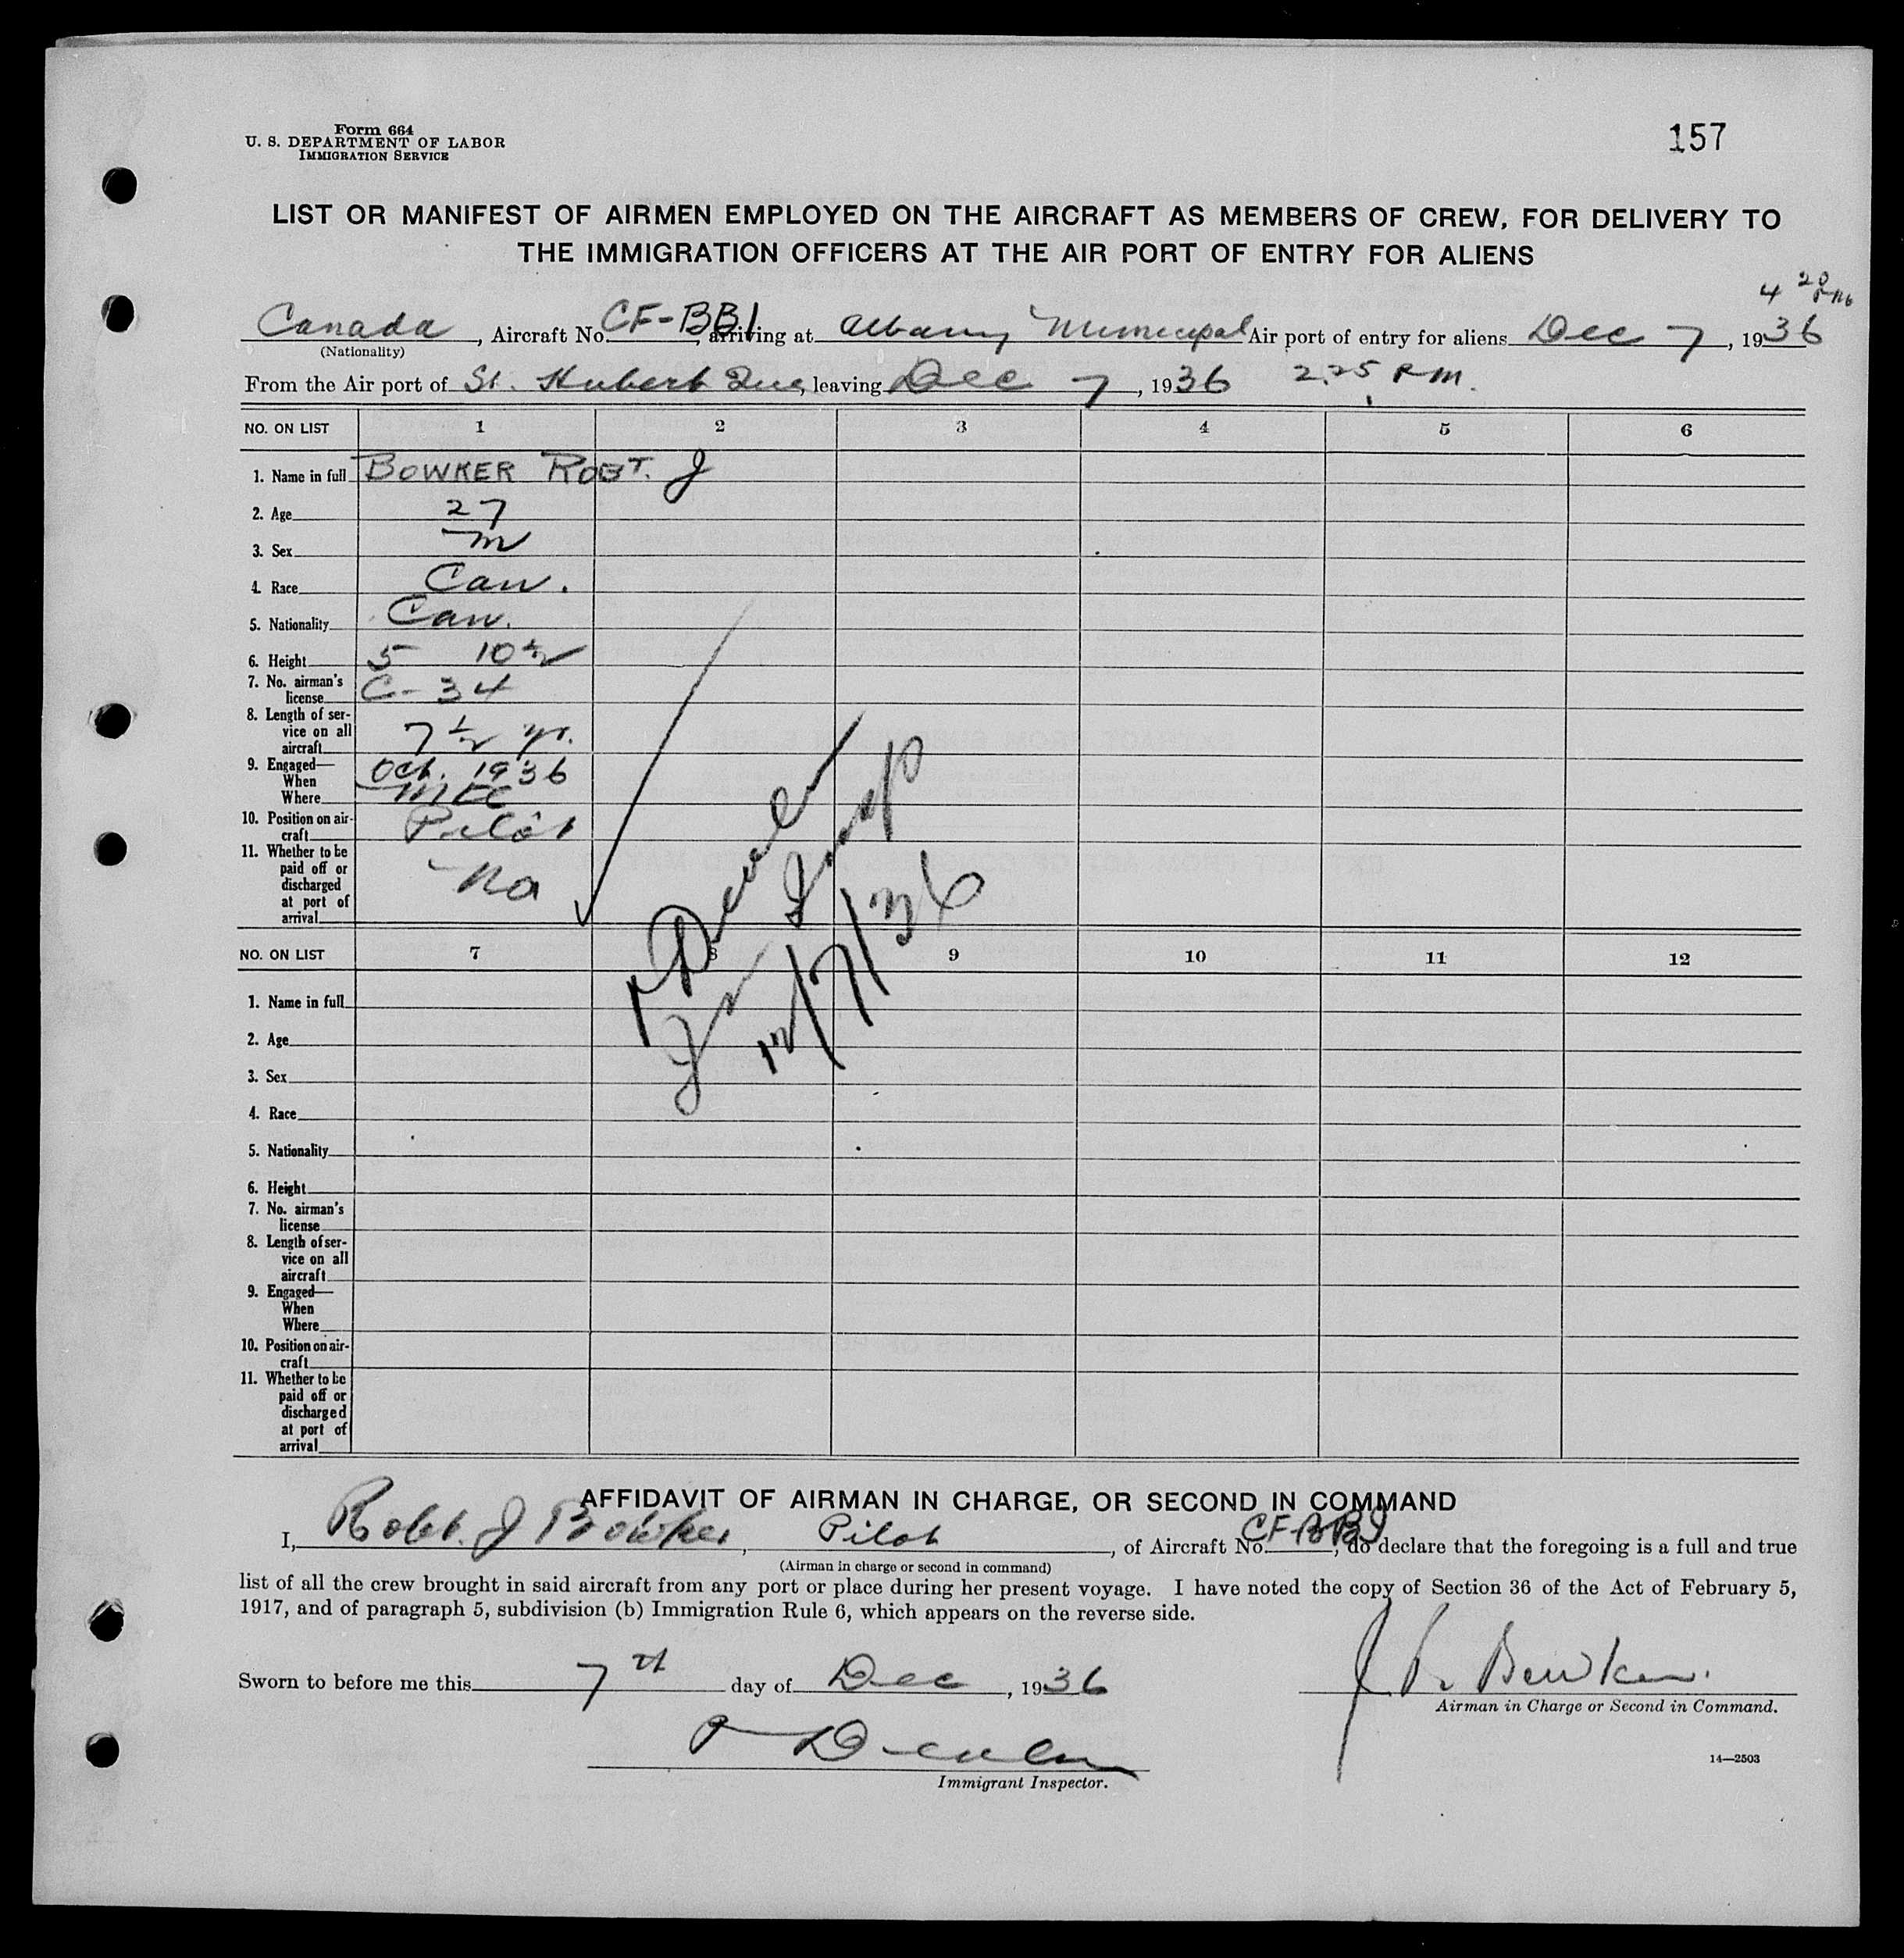 Form 664
U. S. DEPARTMENT OF LABOR
IMMIGRATION SERVICE
157
LIST OR MANIFEST OF AIRMEN EMPLOYED ON THE AIRCRAFT AS MEMBERS OF CREW, FOR DELIVERY TO
THE IMMIGRATION OFFICERS AT THE AIR PORT OF ENTRY FOR ALIENS
4 20 PM
Canada, Aircraft No. CF-BBI, arriving at Albany Municipal Air port of entry for aliens Dec 7, 1936
(Nationality)
From the Air port of St. Hubert Que, leaving Dec 7, 1936 2.25 P.M.
NO. ON LIST 1 2 3 4 5 6
1. Name in full BOWKER ROBT. J
2. Age 27
3. Sex M
4. Race Can.
5. Nationality Can.
6. Height 5 10 1/2
7. No. airman's
license C-34
8. Length of ser-
vice on all
aircraft 7 1/2 yr.
9. Engaged—
When Oct. 1936
Where
10. Position on air-
craft Pilot
11. Whether to be
paid off or
discharged
at port of
arrival No
12/7/36
NO. ON LIST 7 8 9 10 11 12
1. Name in full
2. Age
3. Sex
4. Race
5. Nationality
6. Height
7. No. airman's
license
8. Length of ser-
vice on all
aircraft
9. Engaged—
When
Where
10. Position on air-
craft
11. Whether to be
paid off or
discharged
at port of
arrival
AFFIDAVIT OF AIRMAN IN CHARGE, OR SECOND IN COMMAND
I, Robt. J Bowker, Pilot, of Aircraft No. CF-BBI, do declare that the foregoing is a full and true
(Airman in charge or second in command)
list of all the crew brought in said aircraft from any port or place during her present voyage. I have noted the copy of Section 36 of the Act of February 5,
1917, and of paragraph 5, subdivision (b) Immigration Rule 6, which appears on the reverse side.
Sworn to before me this 7th day of Dec, 1936
J R Bowker.
Airman in Charge or Second in Command.
Immigrant Inspector.
14—2503